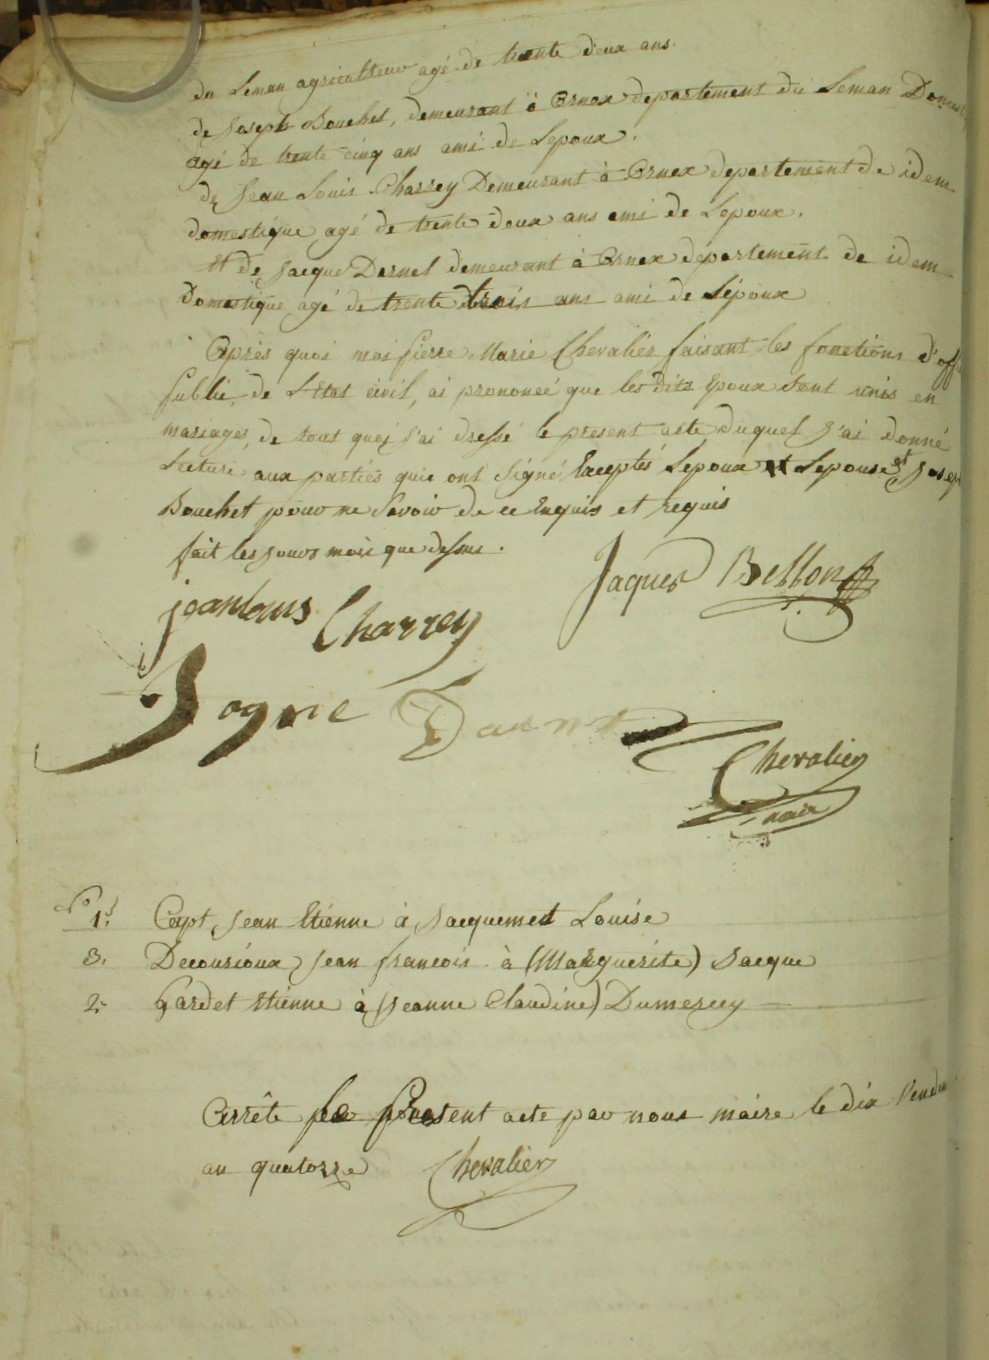 du Leman agriculteur agé de trente deux ans.
de Joseph Bouchet, demeurant à Ornex departement du Leman
agé de trente cinq ans ami de Lepoux.
de Jean Louis Charrey Demeurant à Ornex departement de idem
domestique agé de trente deux ans ami de Lepoux.
et de Jacque Dernel demeurant à Ornex departement de idem
Domestique agé de trente trois ans ami de Lépoux
Après quoi moi Pierre Marie Chevalier faisant les fonctions
Public de L'Etat civil, ai prononcé que les dits Epoux sont unis en
mariages, de tout quoj j'ai dressé le present acte duquel j'ai donné
Lecture aux parties qui ont Signé Exceptés Lepoux et Lepouse et
Bouchet pour ne Savoir de ce Enquis et requis
fait les jours mois que dessus.
Jaques Bellon
jean louis Charrey
Jogne
Chevalier
maire
No 1er Capt Jean Etienne à Jacquemet Louise
3. Decourioux Jean francois à (Marguerite) Jacque
2. Gardet Etienne à (Jeanne Claudine) Dumerey
Arrête le present acte par nous maire le dix
an quatorze Chevalier